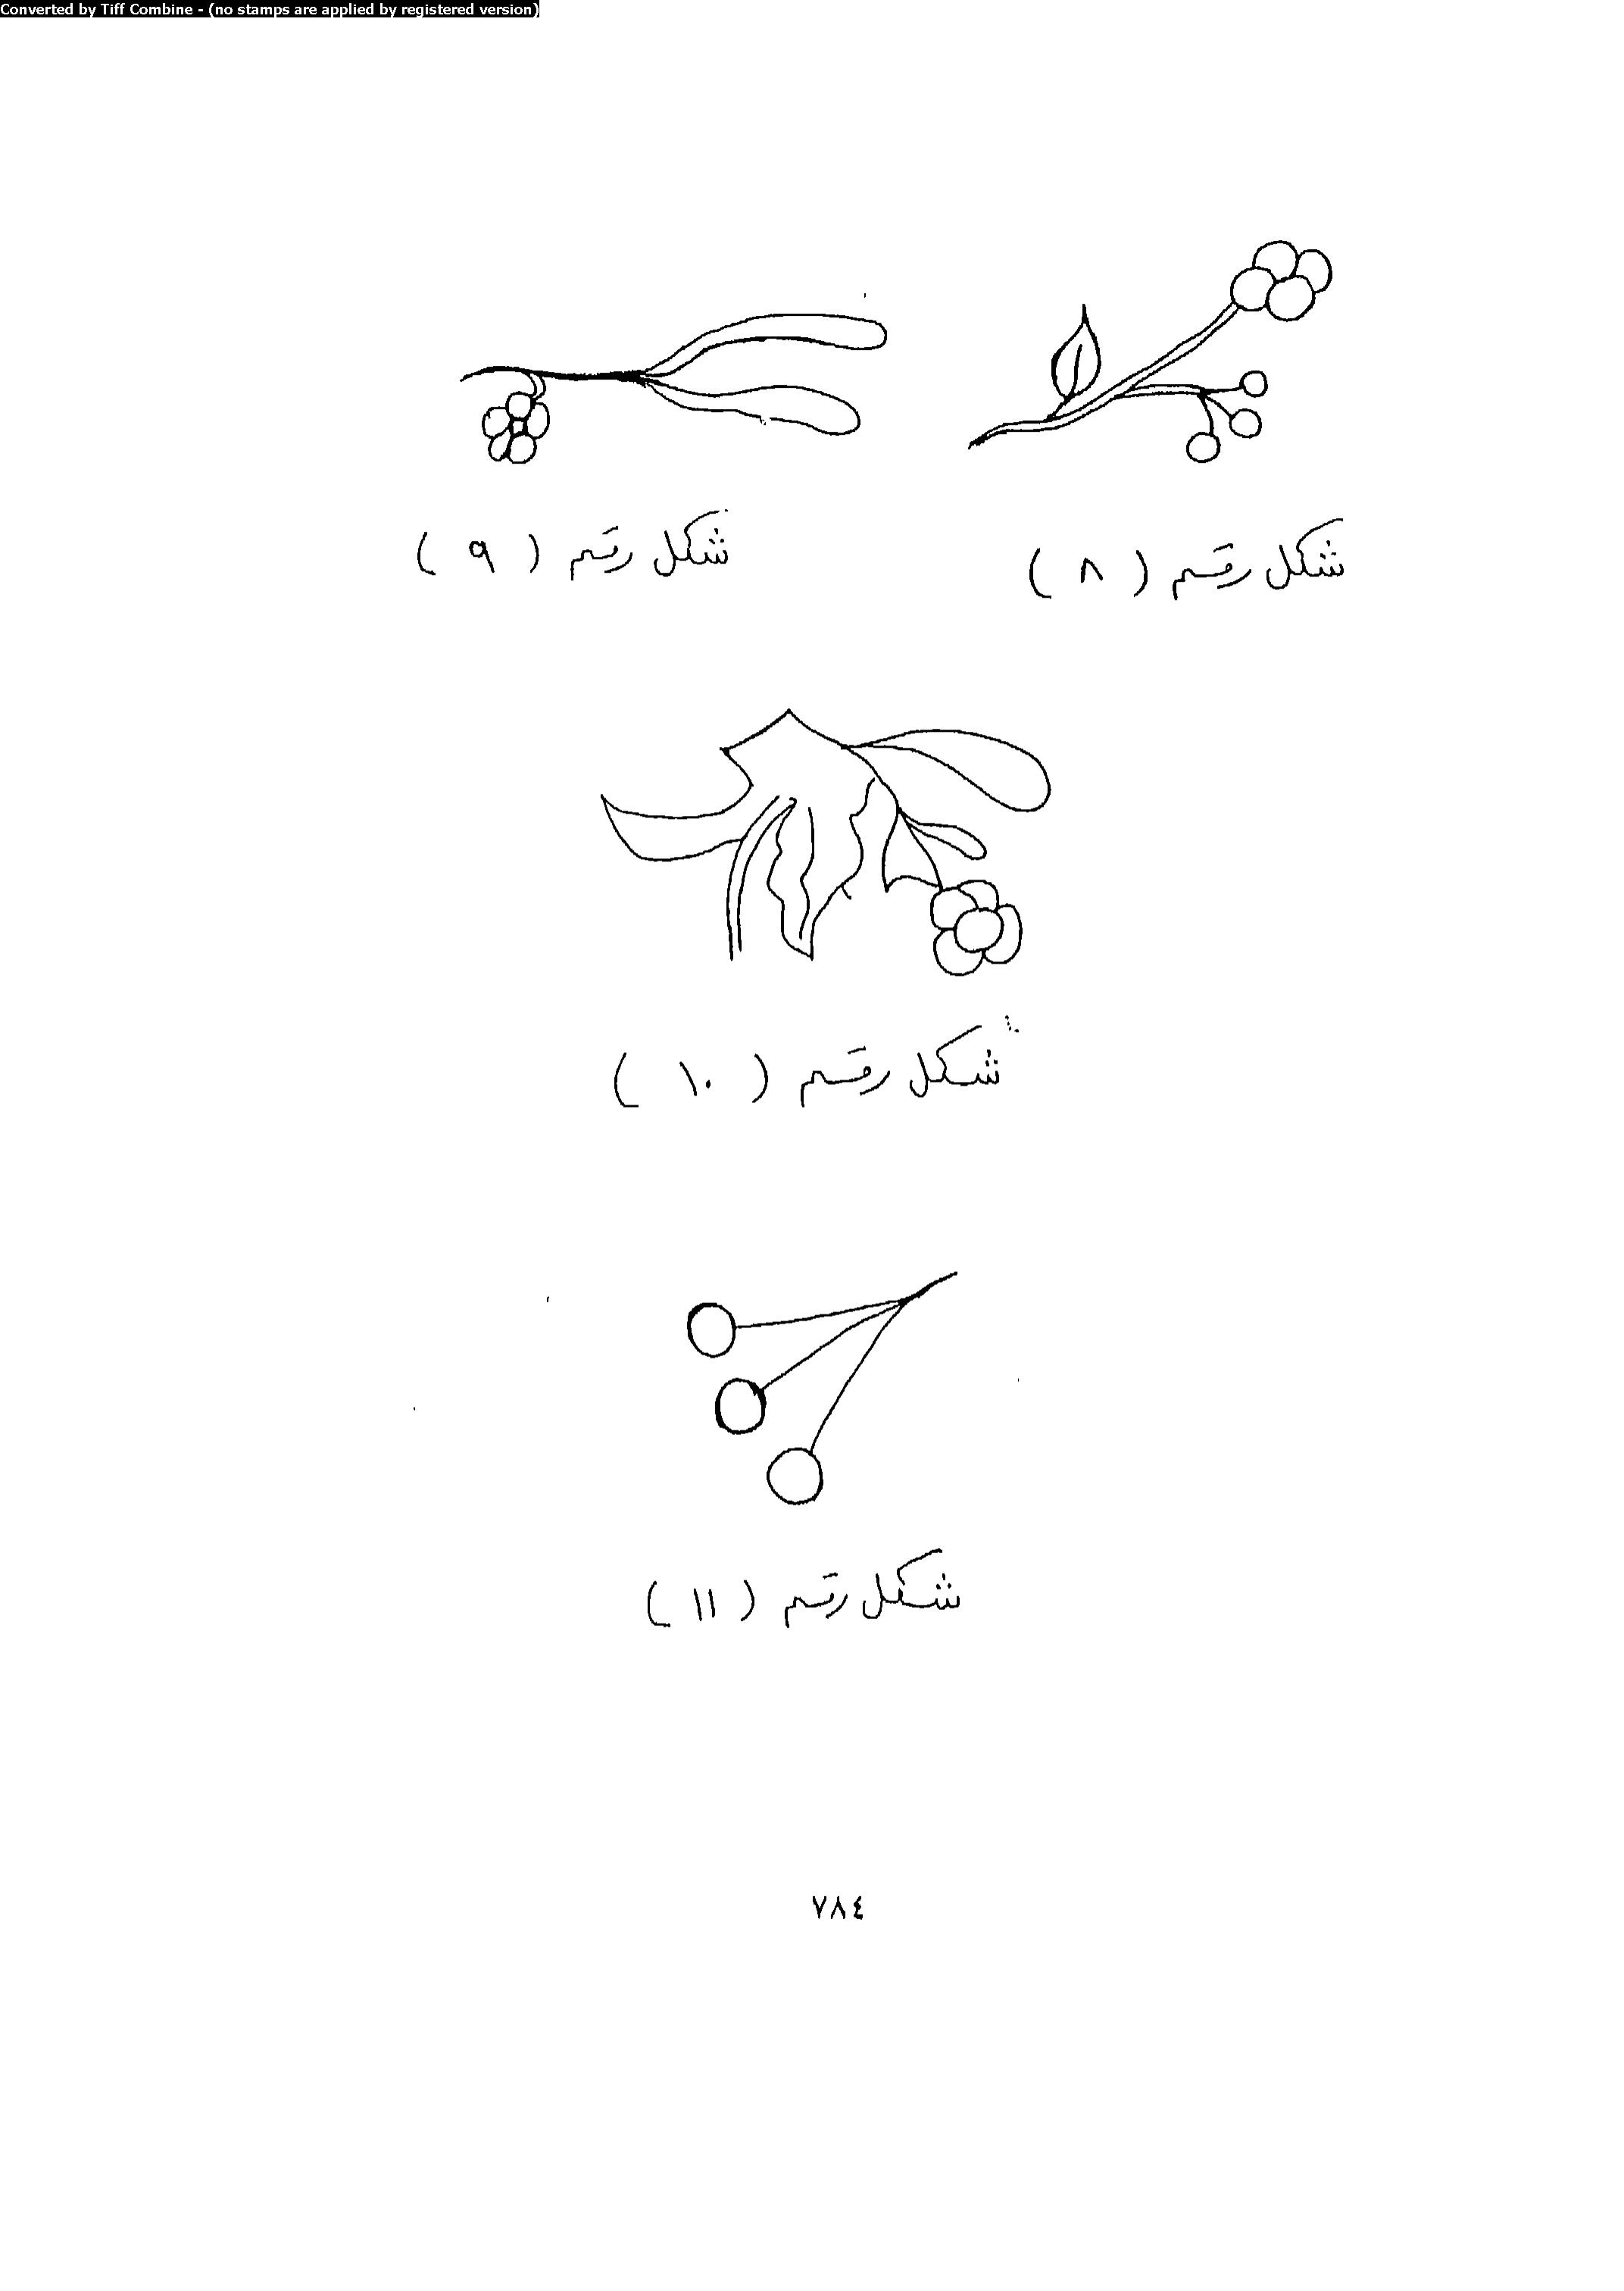 Converted by Tiff Combine - (no stamps are applied by registered version)
شكل رقم ( ٨ )
شكل رقم ( ٩ )
شكل رقم ( ١٠ )
شكل رقم ( ١١ )
٧٨٤